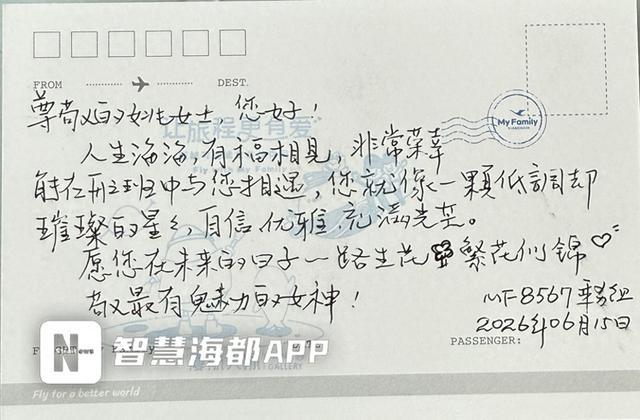 FROM DEST.
My Family
XIAMENAIR
尊敬的姚女士，您好！
让旅程更有爱
人生海海 有福相见，非常荣幸
能在a班中与您相遇，您就像一颗低調却
璀璨的星星，自信、优雅、充满光芒。
愿您在未来的日子一路生花 繁花似锦
致最有魅力的女神！
MF8567乘务组
2026年06月15日
PASSENGER:
News
智慧海都APP
GALLERY
Fly for a better world